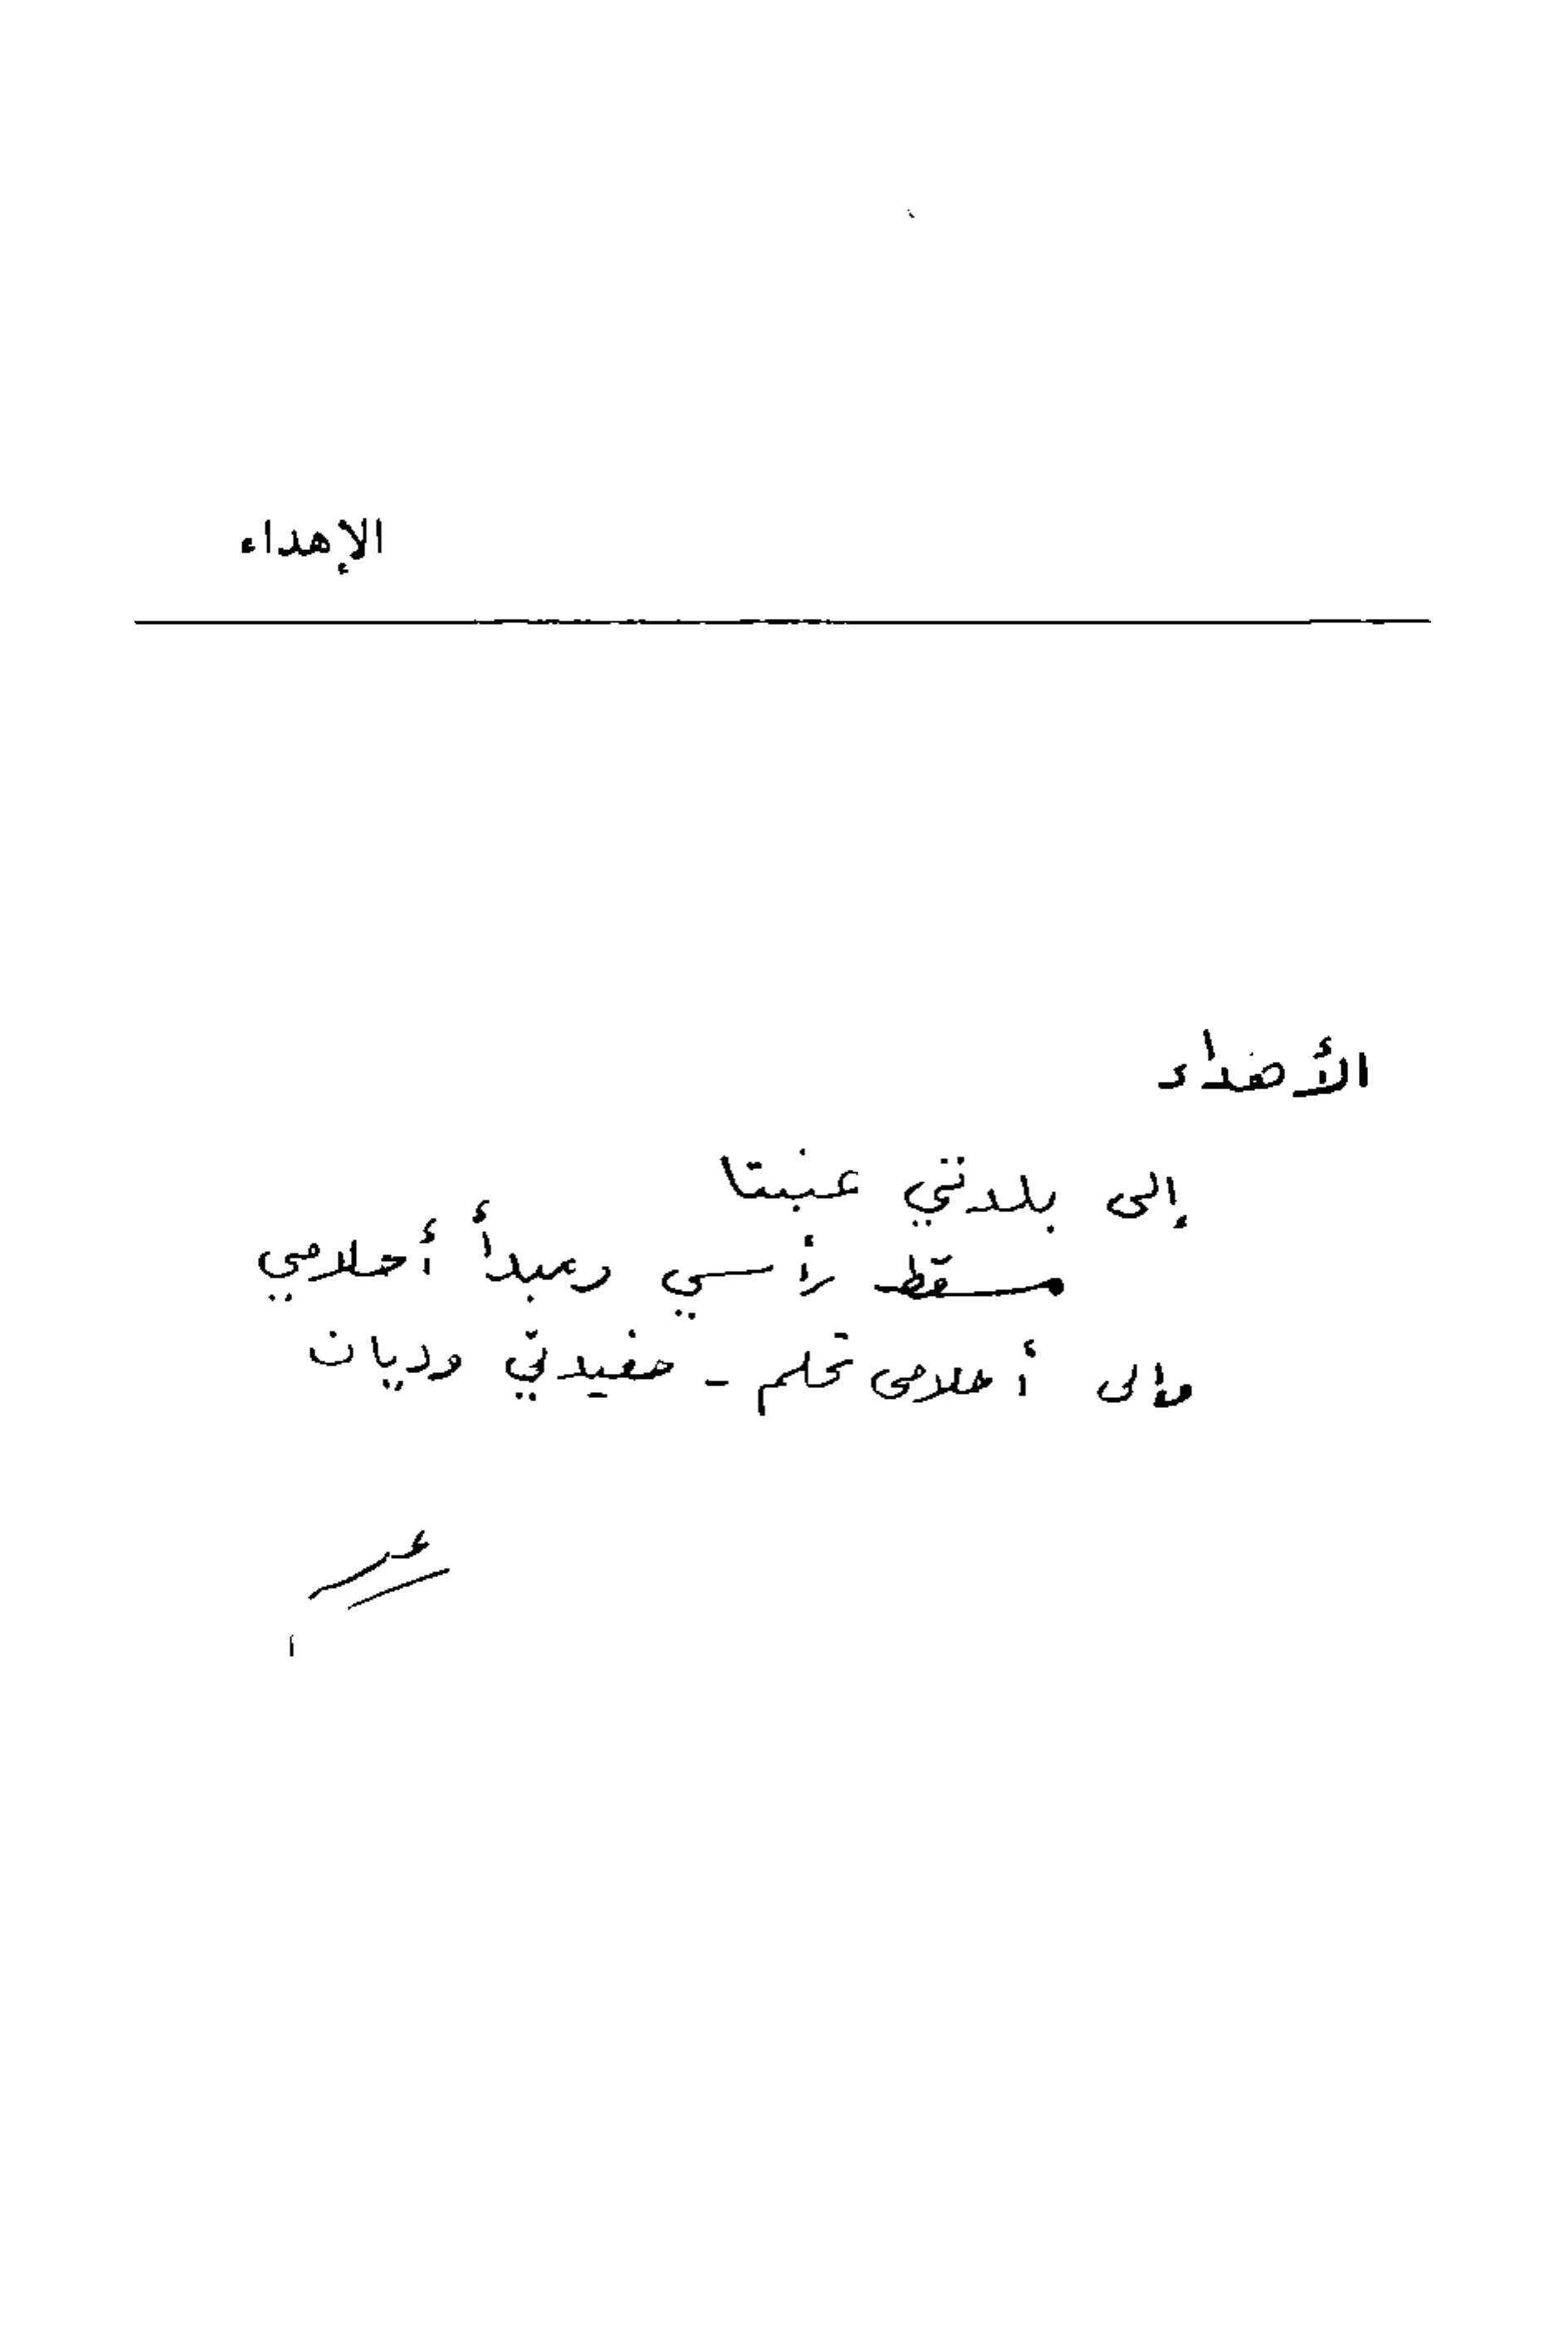 الإهداء
الأضداد
إلى بلدتي عنبتا
مسقط رأسي ومبدأ أحلامي
وإلى أحلامي تحلم - حفيدتي وديان